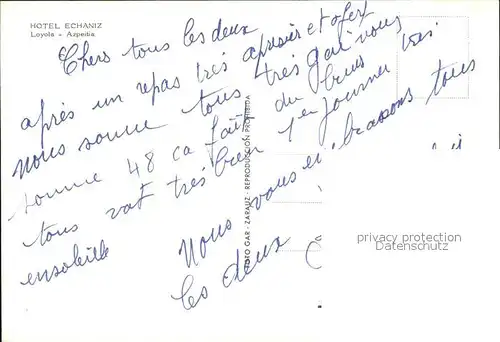 HOTEL ECHANIZ
Loyola - Azpeitia
Chers tous les deux
après un repas très et
nous somme tous très gai nous
somme 48 ça fait du brui
tous vat très bien 1er journer très
ensoleille
Nous vous embrassons tous
les deux
FOTO GAR - ZARAUZ - REPRODUCCION PROHIBIDA
privacy protection
AnsichtskartenHandel.de